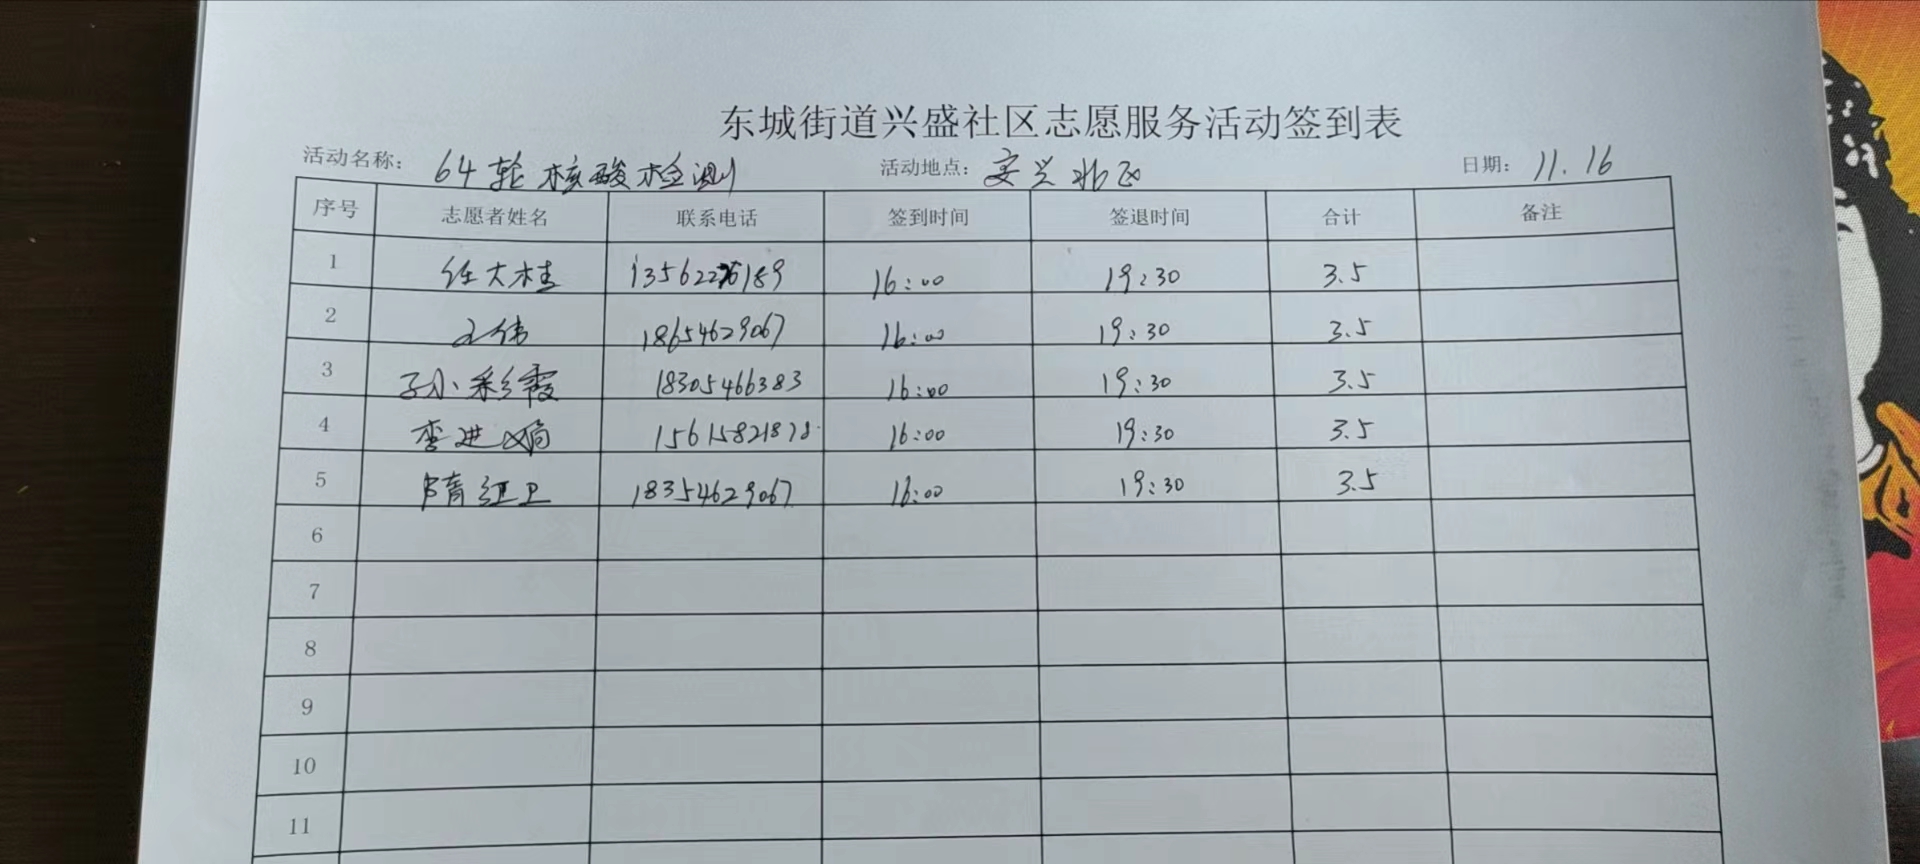 东城街道兴盛社区志愿服务活动签到表
活动名称: 64轮核酸检测 活动地点: 安兴北区 日期: 11.16
序号 志愿者姓名 联系电话 签到时间 签退时间 合计 备注
1 任大桂 16:00 19:30 3.5
2 王伟 18654629067 16:00 19:30 3.5
3 孙彩霞 18305466383 16:00 19:30 3.5
4 李进娟 15615821878 16:00 19:30 3.5
5 隋红卫 18354629067 16:00 19:30 3.5
6
7
8
9
10
11